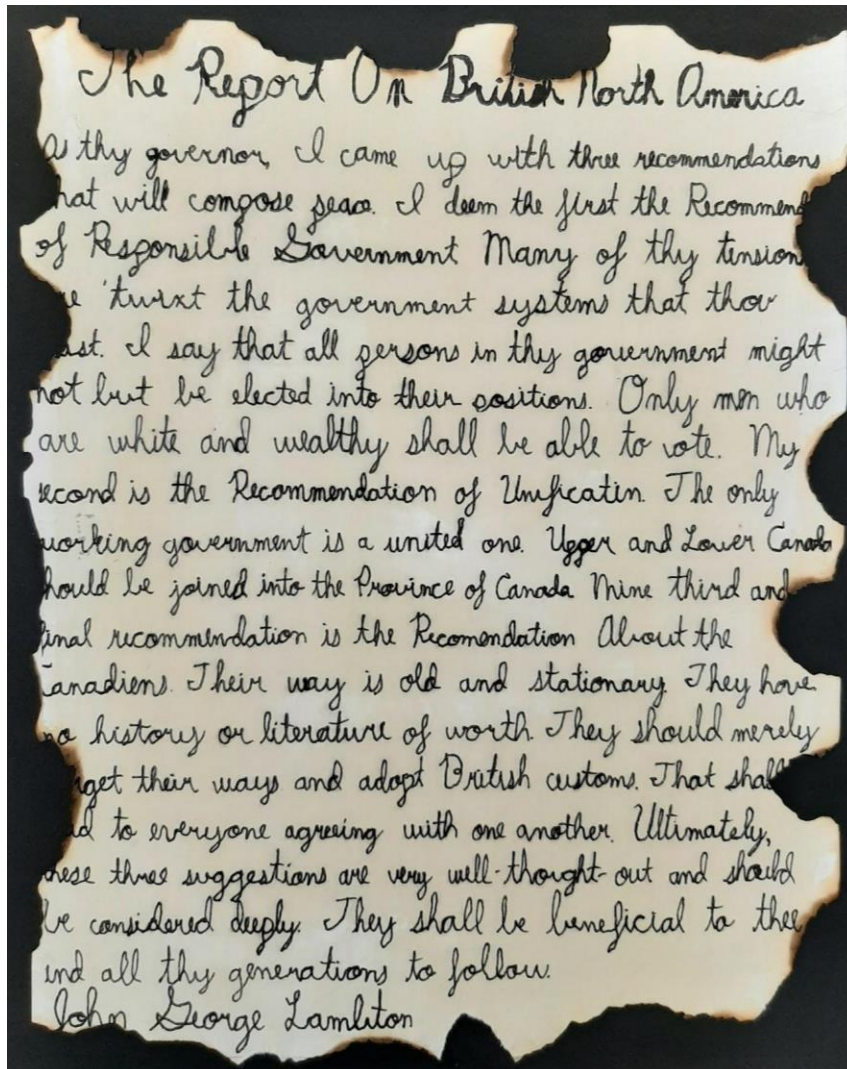 The Report On British North America
As thy governor, I came up with three recommendations
hat will compose peace. I deem the first the Recommend
of Responsible Government Many of thy tension
e 'twixt the government systems that thou
ast. I say that all persons in thy government might
not but be elected into their positions. Only men who
are white and wealthy shall be able to vote. My
econd is the Recommendation of Unificatin. The only
working government is a united one. Upper and Lower Canada
hould be joined into the Province of Canada Mine third and
final recommendation is the Recomendation About the
Canadiens. Their way is old and stationary. They have
no history or literature of worth. They should merely
rget their ways and adopt British customs. That shall
ad to everyone agreeing with one another. Ultimately,
hese three suggestions are very well-thought-out and should
be considered deeply. They shall be beneficial to thee
and all thy generations to follow.
John George Lambton